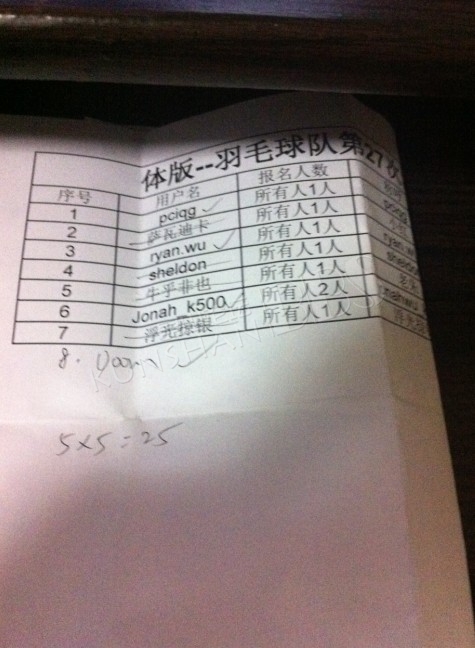 体版--羽毛球队第27次
序号 用户名 报名人数
1 pciqg ✓ 所有人1人 pciqg
2 萨瓦迪卡 所有人1人
3 ryan.wu ✓ 所有人1人 ryan.wu
4 sheldon 所有人1人 sheldon
5 牛乎非也 所有人1人
6 Jonah_k500 所有人2人
7 浮光掠银 所有人1人 浮光
8.
KUNSHAN
5×5=25